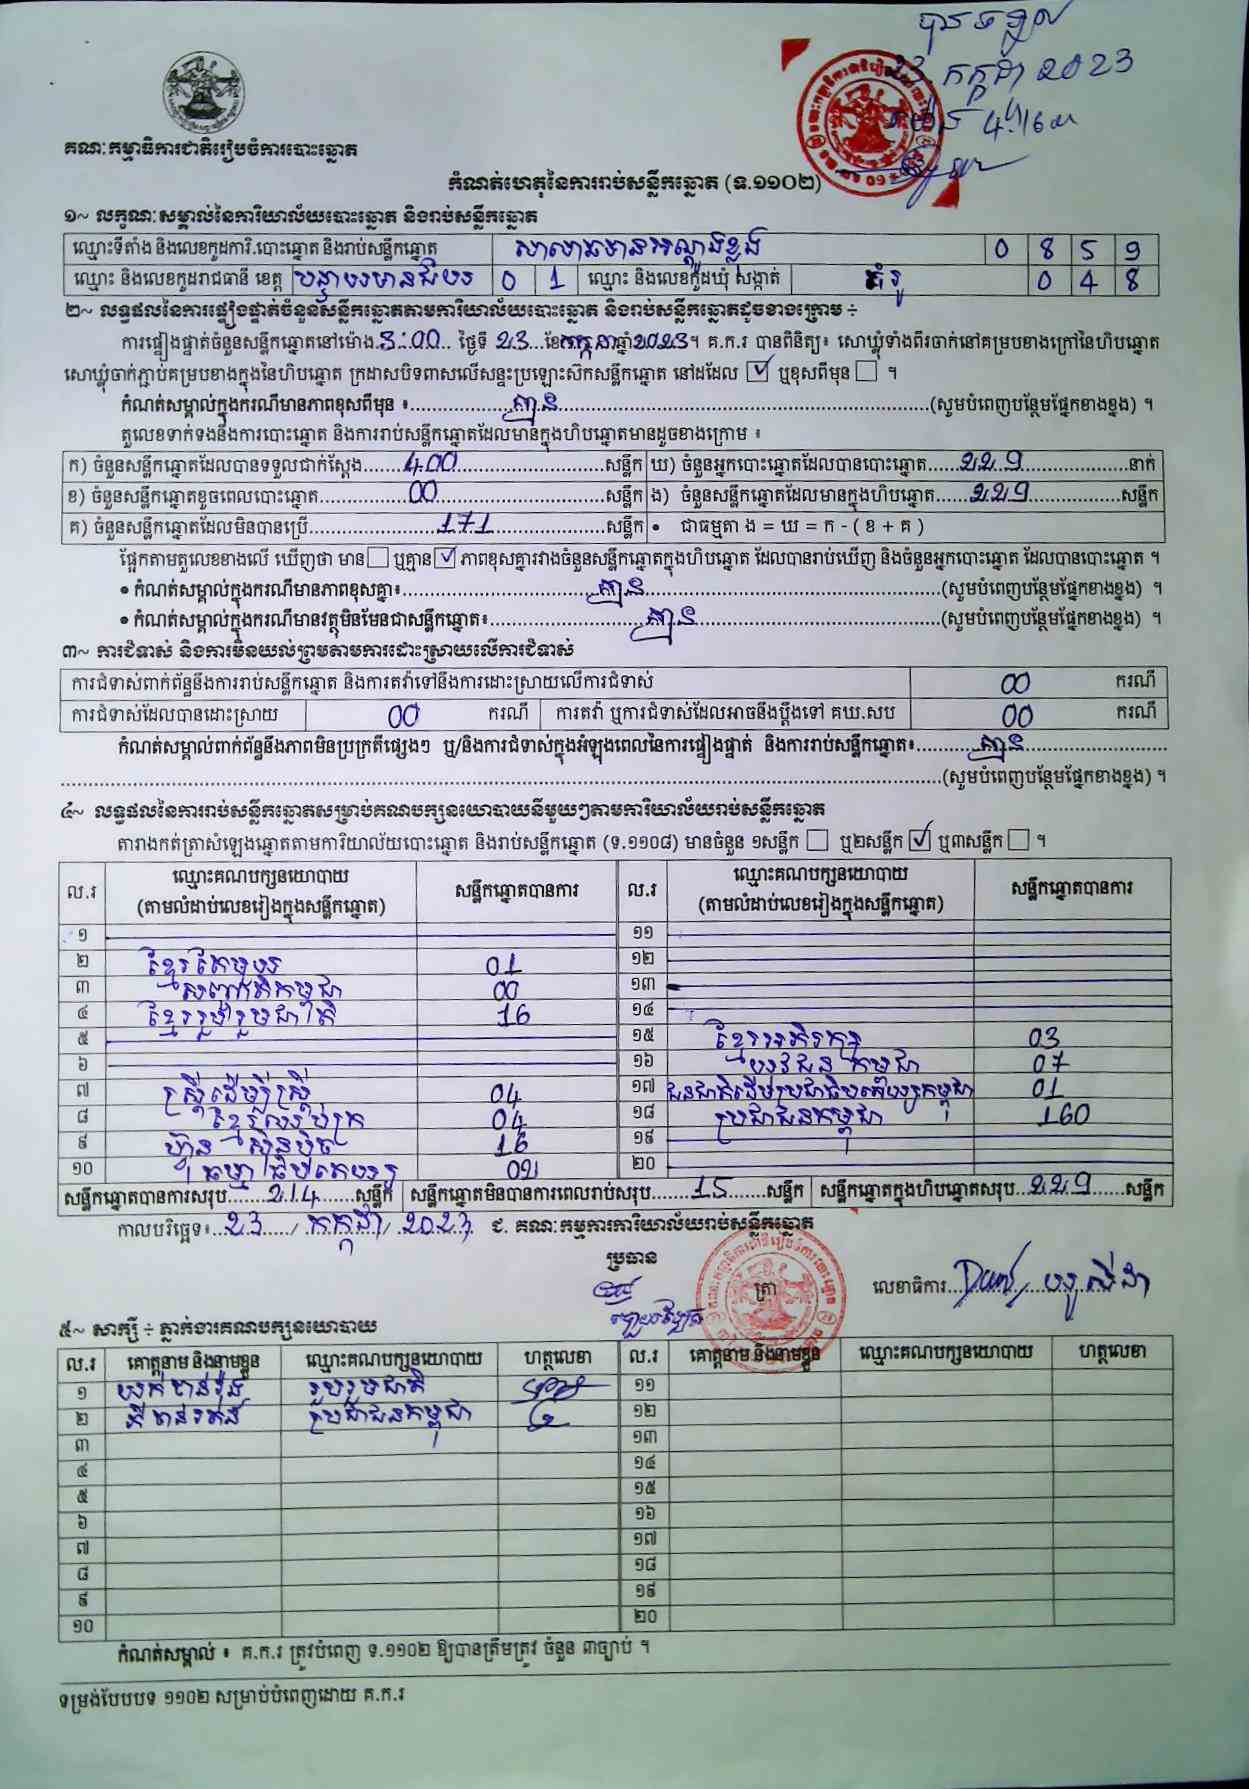 បានទទួល
23 កក្កដា 2023
ម៉ោង 4:16
គណៈកម្មាធិការជាតិរៀបចំការបោះឆ្នោត
កំណត់ហេតុនៃការរាប់សន្លឹកឆ្នោត (ទ.១១០២)
១~ លក្ខណៈសម្គាល់នៃការិយាល័យបោះឆ្នោត និងរាប់សន្លឹកឆ្នោត
ឈ្មោះទីតាំង និងលេខកូដការិ.បោះឆ្នោត និងរាប់សន្លឹកឆ្នោត សាលាឆទានអណ្តូងខ្លុង 0 8 5 9
ឈ្មោះ និងលេខកូដរាជធានី ខេត្ត បន្ទាយមានជ័យ 0 1 ឈ្មោះ និងលេខកូដឃុំ សង្កាត់ គំរូ 0 4 8
២~ លទ្ធផលនៃការផ្ទៀងផ្ទាត់ចំនួនសន្លឹកឆ្នោតតាមការិយាល័យបោះឆ្នោត និងរាប់សន្លឹកឆ្នោតដូចខាងក្រោម ÷
ការផ្ទៀងផ្ទាត់ចំនួនសន្លឹកឆ្នោតនៅម៉ោង 3:00 ថ្ងៃទី 23 ខែ កក្កដា ឆ្នាំ 2023។ គ.ក.រ បានពិនិត្យ៖ សោឃ្លុំទាំងពីរចាក់នៅគម្របខាងក្រៅនៃហិបឆ្នោត
សោឃ្លុំចាក់ភ្ជាប់គម្របខាងក្នុងនៃហិបឆ្នោត ក្រដាសបិទពាសលើសន្ទះប្រឡោះស៊កសន្លឹកឆ្នោត នៅដដែល ☑ ឬខុសពីមុន ☐ ។
កំណត់សម្គាល់ក្នុងករណីមានភាពខុសពីមុន ៖ គ្មាន (សូមបំពេញបន្ថែមផ្នែកខាងខ្នង) ។
តួលេខទាក់ទងនឹងការបោះឆ្នោត និងការរាប់សន្លឹកឆ្នោតដែលមានក្នុងហិបឆ្នោតមានដូចខាងក្រោម ៖
ក) ចំនួនសន្លឹកឆ្នោតដែលបានទទួលជាក់ស្តែង 400 សន្លឹក ឃ) ចំនួនអ្នកបោះឆ្នោតដែលបានបោះឆ្នោត 229 នាក់
ខ) ចំនួនសន្លឹកឆ្នោតខូចពេលបោះឆ្នោត 00 សន្លឹក ង) ចំនួនសន្លឹកឆ្នោតដែលមានក្នុងហិបឆ្នោត 229 សន្លឹក
គ) ចំនួនសន្លឹកឆ្នោតដែលមិនបានប្រើ 171 សន្លឹក • ជាធម្មតា ង = ឃ = ក - ( ខ + គ )
ផ្អែកតាមតួលេខខាងលើ ឃើញថា មាន ☐ ឬគ្មាន ☑ ភាពខុសគ្នារវាងចំនួនសន្លឹកឆ្នោតក្នុងហិបឆ្នោត ដែលបានរាប់ឃើញ និងចំនួនអ្នកបោះឆ្នោត ដែលបានបោះឆ្នោត ។
• កំណត់សម្គាល់ក្នុងករណីមានភាពខុសគ្នា៖ គ្មាន (សូមបំពេញបន្ថែមផ្នែកខាងខ្នង) ។
• កំណត់សម្គាល់ក្នុងករណីមានវត្ថុមិនមែនជាសន្លឹកឆ្នោត៖ គ្មាន (សូមបំពេញបន្ថែមផ្នែកខាងខ្នង) ។
៣~ ការជំទាស់ និងការមិនយល់ព្រមតាមការដោះស្រាយលើការជំទាស់
ការជំទាស់ពាក់ព័ន្ធនឹងការរាប់សន្លឹកឆ្នោត និងការតវ៉ាទៅនឹងការដោះស្រាយលើការជំទាស់ 00 ករណី
ការជំទាស់ដែលបានដោះស្រាយ 00 ករណី ការតវ៉ា ឬការជំទាស់ដែលអាចនឹងប្តឹងទៅ គឃ.សប 00 ករណី
កំណត់សម្គាល់ពាក់ព័ន្ធនឹងភាពមិនប្រក្រតីផ្សេងៗ ឬ/និងការជំទាស់ក្នុងអំឡុងពេលនៃការផ្ទៀងផ្ទាត់ និងការរាប់សន្លឹកឆ្នោត៖ គ្មាន
(សូមបំពេញបន្ថែមផ្នែកខាងខ្នង) ។
៤~ លទ្ធផលនៃការរាប់សន្លឹកឆ្នោតសម្រាប់គណបក្សនយោបាយនីមួយៗតាមការិយាល័យរាប់សន្លឹកឆ្នោត
តារាងកត់ត្រាសំឡេងឆ្នោតតាមការិយាល័យបោះឆ្នោត និងរាប់សន្លឹកឆ្នោត (ទ.១១០៨) មានចំនួន ១សន្លឹក ☐ ឬ២សន្លឹក ☑ ឬ៣សន្លឹក ☐ ។
ល.រ ឈ្មោះគណបក្សនយោបាយ (តាមលំដាប់លេខរៀងក្នុងសន្លឹកឆ្នោត) សន្លឹកឆ្នោតបានការ ល.រ ឈ្មោះគណបក្សនយោបាយ (តាមលំដាប់លេខរៀងក្នុងសន្លឹកឆ្នោត) សន្លឹកឆ្នោតបានការ
១ ១១
២ ខ្មែរតែមួយ 01 ១២
៣ សញ្ជាតិកម្ពុជា 00 ១៣
៤ ខ្មែររួបរួមជាតិ 16 ១៤
៥ ១៥ ខ្មែរអភិរក្ស 03
៦ ១៦ យុវជនកម្ពុជា 07
៧ ស្ត្រីដើម្បីស្ត្រី 04 ១៧ ជនជាតិដើមប្រជាធិបតេយ្យកម្ពុជា 01
៨ ខ្មែរឈប់ក្រ 04 ១៨ ប្រជាជនកម្ពុជា 160
៩ ហ៊្វុនស៊ិនប៉ិច 16 ១៩
១០ ធម្មាធិបតេយ្យ 02 ២០
សន្លឹកឆ្នោតបានការសរុប 214 សន្លឹក សន្លឹកឆ្នោតមិនបានការពេលរាប់សរុប 15 សន្លឹក សន្លឹកឆ្នោតក្នុងហិបឆ្នោតសរុប 229 សន្លឹក
កាលបរិច្ឆេទ៖ 23 / កក្កដា / 2023 ជ. គណៈកម្មការការិយាល័យរាប់សន្លឹកឆ្នោត
ប្រធាន
ត្រា លេខាធិការ
៥~ សាក្សី ÷ ភ្នាក់ងារគណបក្សនយោបាយ
ល.រ គោត្តនាម និងនាមខ្លួន ឈ្មោះគណបក្សនយោបាយ ហត្ថលេខា ល.រ គោត្តនាម និងនាមខ្លួន ឈ្មោះគណបក្សនយោបាយ ហត្ថលេខា
១ រួបរួមជាតិ ១១
២ ប្រជាជនកម្ពុជា ១២
៣ ១៣
៤ ១៤
៥ ១៥
៦ ១៦
៧ ១៧
៨ ១៨
៩ ១៩
១០ ២០
កំណត់សម្គាល់ ៖ គ.ក.រ ត្រូវបំពេញ ទ.១១០២ ឱ្យបានត្រឹមត្រូវ ចំនួន ៣ច្បាប់ ។
ទម្រង់បែបបទ ១១០២ សម្រាប់បំពេញដោយ គ.ក.រ